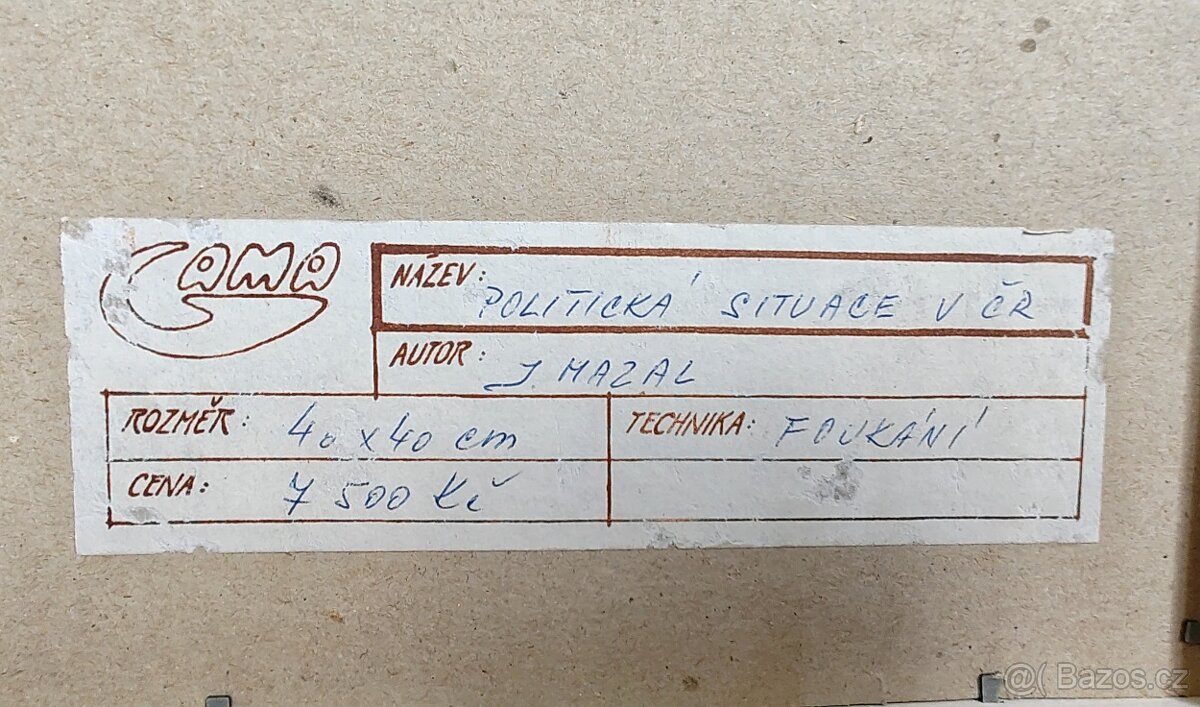 GAMA
NÁZEV: POLITICKÁ SITUACE V ČR
AUTOR: J. MAZAL
ROZMĚR: 40 x 40 cm
TECHNIKA: FOUKÁNÍ
CENA: 7 500 Kč
@( Bazos.cz